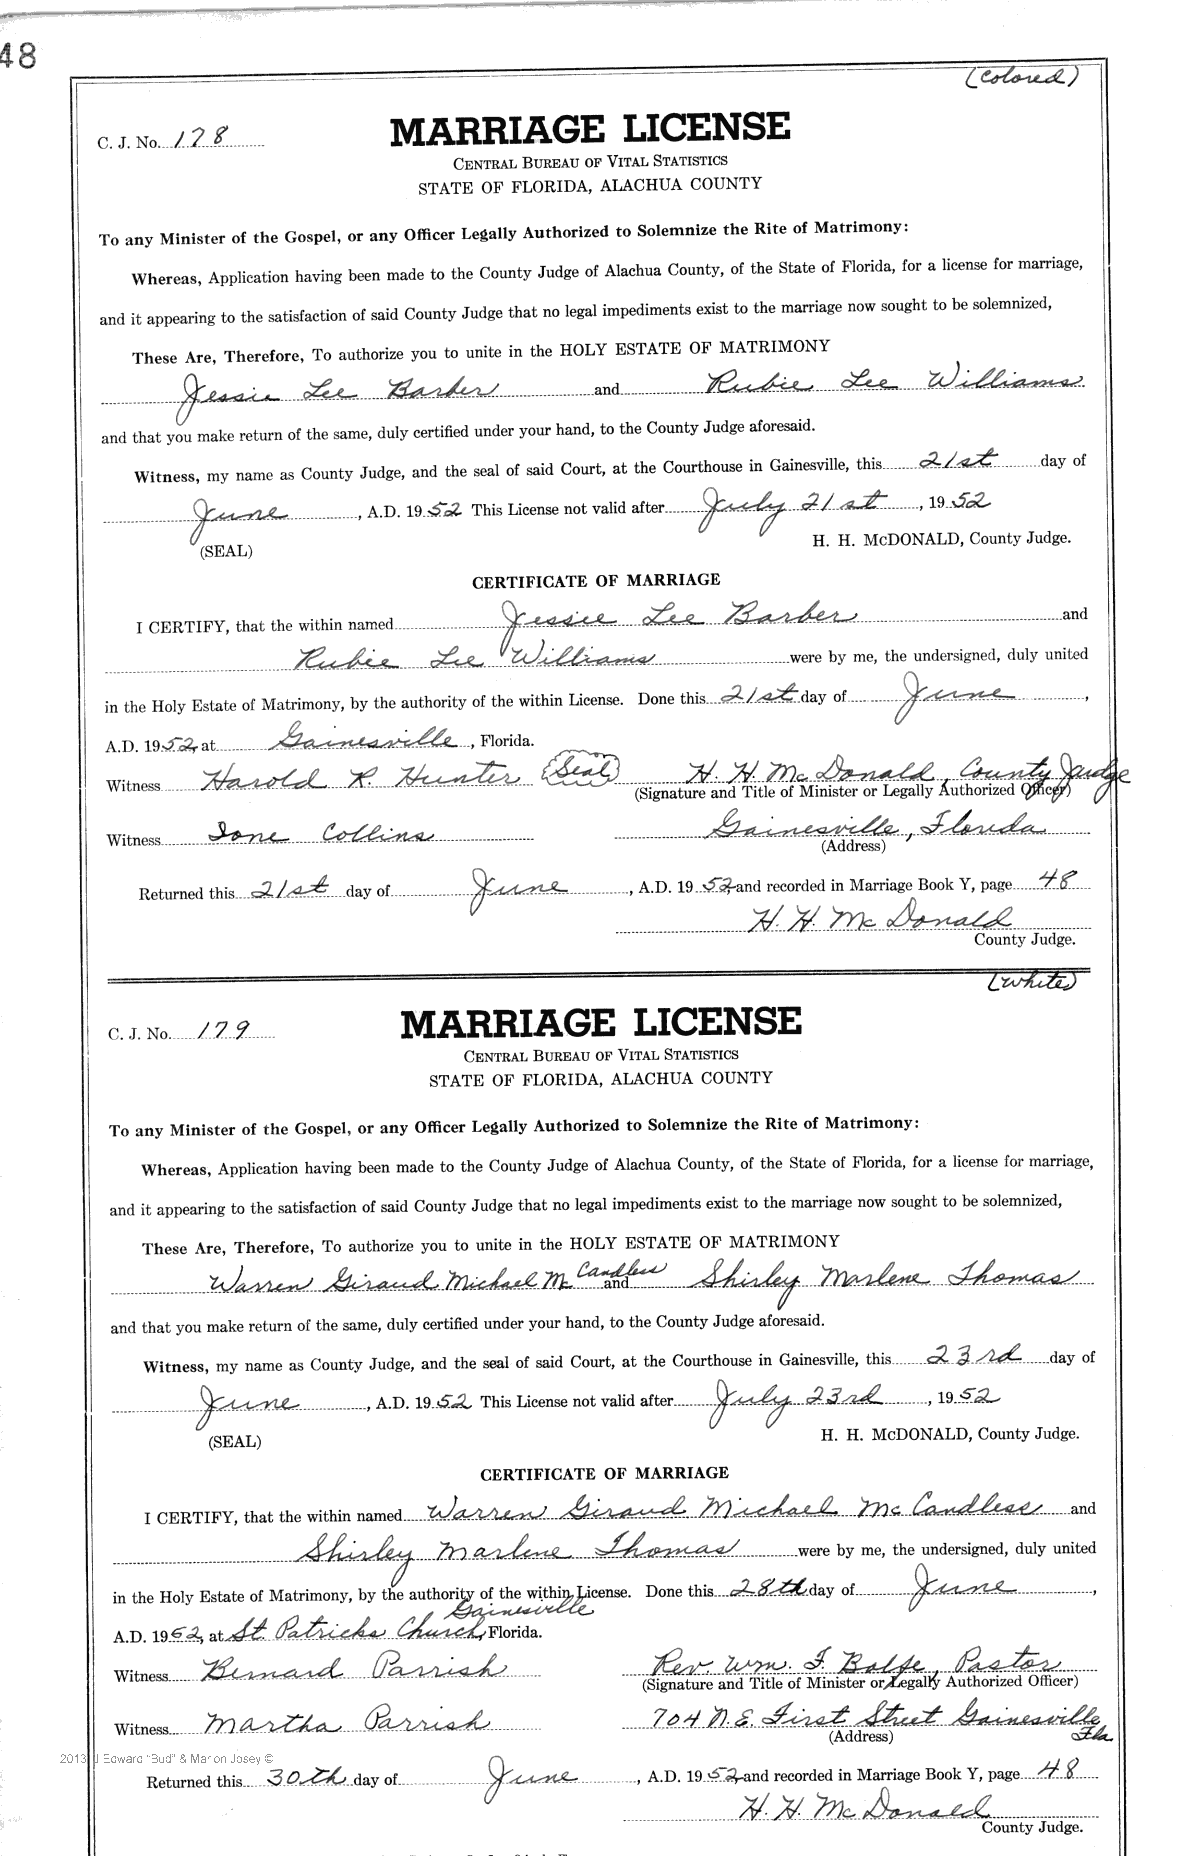 48
(Colored)
C. J. No. 178
MARRIAGE LICENSE
CENTRAL BUREAU OF VITAL STATISTICS
STATE OF FLORIDA, ALACHUA COUNTY
To any Minister of the Gospel, or any Officer Legally Authorized to Solemnize the Rite of Matrimony:
Whereas, Application having been made to the County Judge of Alachua County, of the State of Florida, for a license for marriage,
and it appearing to the satisfaction of said County Judge that no legal impediments exist to the marriage now sought to be solemnized,
These Are, Therefore, To authorize you to unite in the HOLY ESTATE OF MATRIMONY
Jessie Lee Barber and Rubie Lee Williams
and that you make return of the same, duly certified under your hand, to the County Judge aforesaid.
Witness, my name as County Judge, and the seal of said Court, at the Courthouse in Gainesville, this 21st day of
June, A.D. 1952 This License not valid after July 21st, 1952
(SEAL) H. H. McDONALD, County Judge.
CERTIFICATE OF MARRIAGE
I CERTIFY, that the within named Jessie Lee Barber and
Rubie Lee Williams were by me, the undersigned, duly united
in the Holy Estate of Matrimony, by the authority of the within License. Done this 21st day of June,
A.D. 1952 at Gainesville, Florida.
Witness Harold R. Hunter (Seal) H. H. McDonald, County Judge
(Signature and Title of Minister or Legally Authorized Officer)
Witness Ione Collins Gainesville, Florida
(Address)
Returned this 21st day of June, A.D. 1952 and recorded in Marriage Book Y, page 48
H. H. McDonald
County Judge.
(White)
C. J. No. 179
MARRIAGE LICENSE
CENTRAL BUREAU OF VITAL STATISTICS
STATE OF FLORIDA, ALACHUA COUNTY
To any Minister of the Gospel, or any Officer Legally Authorized to Solemnize the Rite of Matrimony:
Whereas, Application having been made to the County Judge of Alachua County, of the State of Florida, for a license for marriage,
and it appearing to the satisfaction of said County Judge that no legal impediments exist to the marriage now sought to be solemnized,
These Are, Therefore, To authorize you to unite in the HOLY ESTATE OF MATRIMONY
Warren Giraud Michael McCandless and Shirley Marlene Thomas
and that you make return of the same, duly certified under your hand, to the County Judge aforesaid.
Witness, my name as County Judge, and the seal of said Court, at the Courthouse in Gainesville, this 23rd day of
June, A.D. 1952 This License not valid after July 23rd, 1952
(SEAL) H. H. McDONALD, County Judge.
CERTIFICATE OF MARRIAGE
I CERTIFY, that the within named Warren Giraud Michael McCandless and
Shirley Marlene Thomas were by me, the undersigned, duly united
in the Holy Estate of Matrimony, by the authority of the within License. Done this 28th day of June,
Gainesville
A.D. 1952, at St. Patricks Church, Florida.
Witness Bernard Parrish Rev. Wm. F. Balfe, Pastor
(Signature and Title of Minister or Legally Authorized Officer)
Witness Martha Parrish 704 N.E. First Street Gainesville Fla
(Address)
2013 J Edward "Bud" & Marion Josey ©
Returned this 30th day of June, A.D. 1952 and recorded in Marriage Book Y, page 48
H. H. McDonald
County Judge.